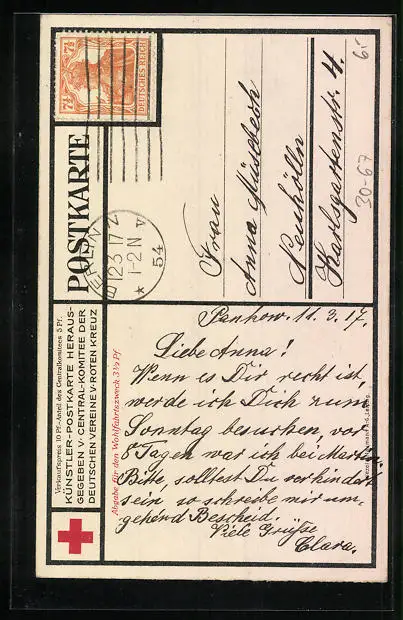 7½ 7½
DEUTSCHES REICH
POSTKARTE
BERLIN
12.3.17
1-2 N
* 54 v
Frau
Anna
Neukölln
Karlsgartenstr. 4.
30-67
6.-
Verkaufspreis 10 Pf.-Anteil des Centralkomitees 5 Pf.
KÜNSTLER-POSTKARTE HERAUS-
GEGEBEN V·CENTRAL-KOMITEE DER
DEUTSCHEN VEREINE V·ROTEN KREUZ
Abgabe für den Wohlfahrtszweck 3½ Pf
Pankow. 11.3.17.
Liebe Anna!
Wenn es Dir recht ist,
werde ich Dich zum
Sonntag besuchen, vor
5 Tagen war ich bei
Bitte, solltest Du verhindert
sein so schreibe mir um-
gehend Bescheid.
Viele Grüße
Clara.